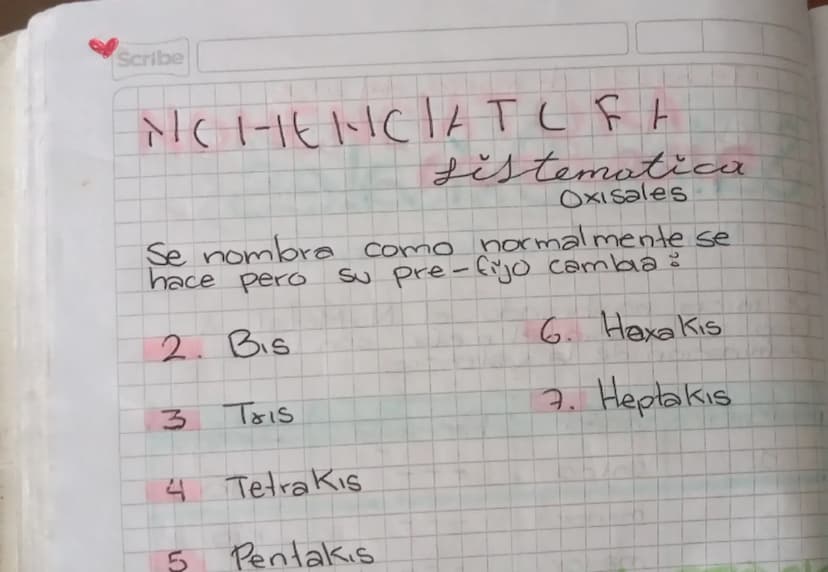 Scribe
sistematica
Oxisales
Se nombra como normalmente se
hace pero su pre-fijo cambia:
2. Bis
6. Hexakis
3 Tris
7. Heptakis
4 Tetrakis
5 Pentakis